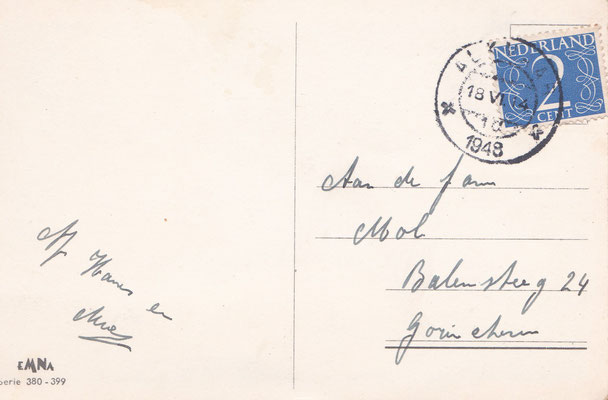 NEDERLAND
2
CENT
18 VI
1948
Aan de fam
Mol
Balensteeg 24
Gorinchem
Hans en
EMNA
Serie 380-399